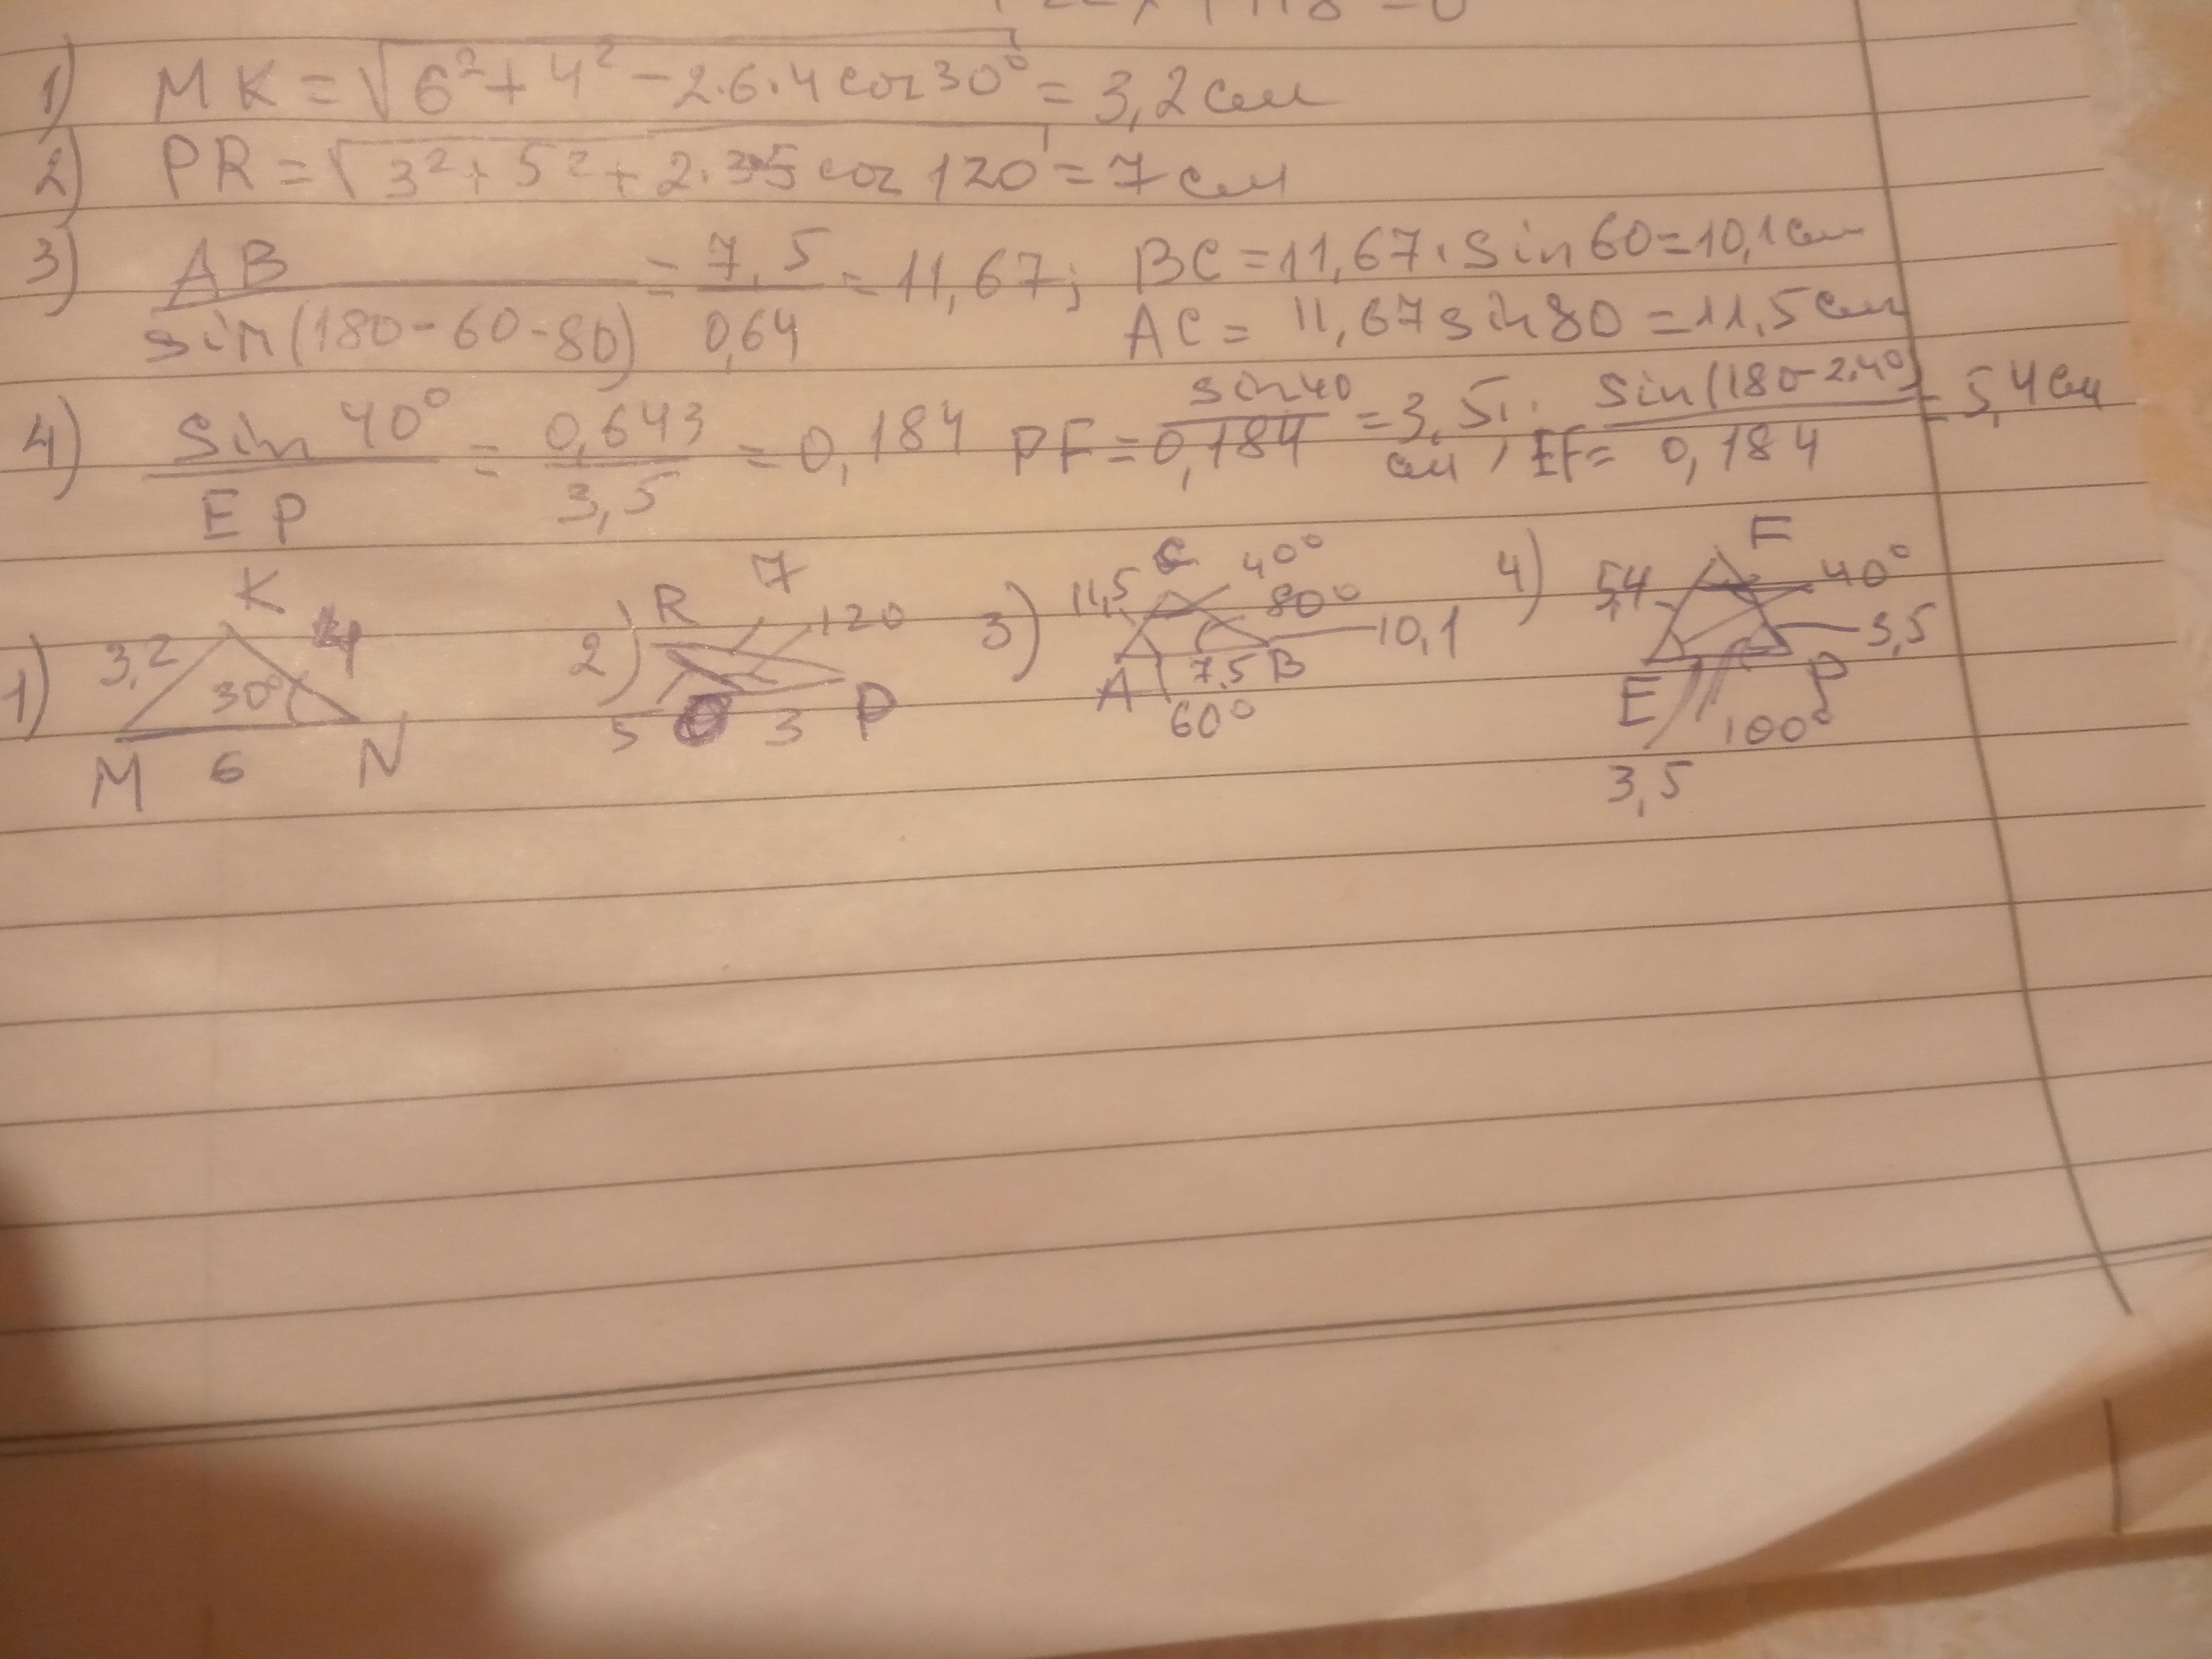 1) MK = √6² + 4² - 2·6·4 cos 30° = 3,2 см
2) PR = √3² + 5² + 2·3·5 cos 120 = 7 см
3) AB / sin(180-60-80) = 7,5 / 0,64 = 11,67; BC = 11,67 · sin 60 = 10,1 см
AC = 11,67 sin 80 = 11,5 см
4) sin 40° / EP = 0,643 / 3,5 = 0,184 PF = sin 40 / 0,184 = 3,5 см, EF = sin(180-2·40) / 0,184 = 5,4 см
1) K 3,2 4 30° M 6 N
2) R 7 120 5 O 3 P
3) 11,5 C 40° 80° 10,1 A 7,5 B 60°
4) F 5,4 40° 3,5 E P 100° 3,5